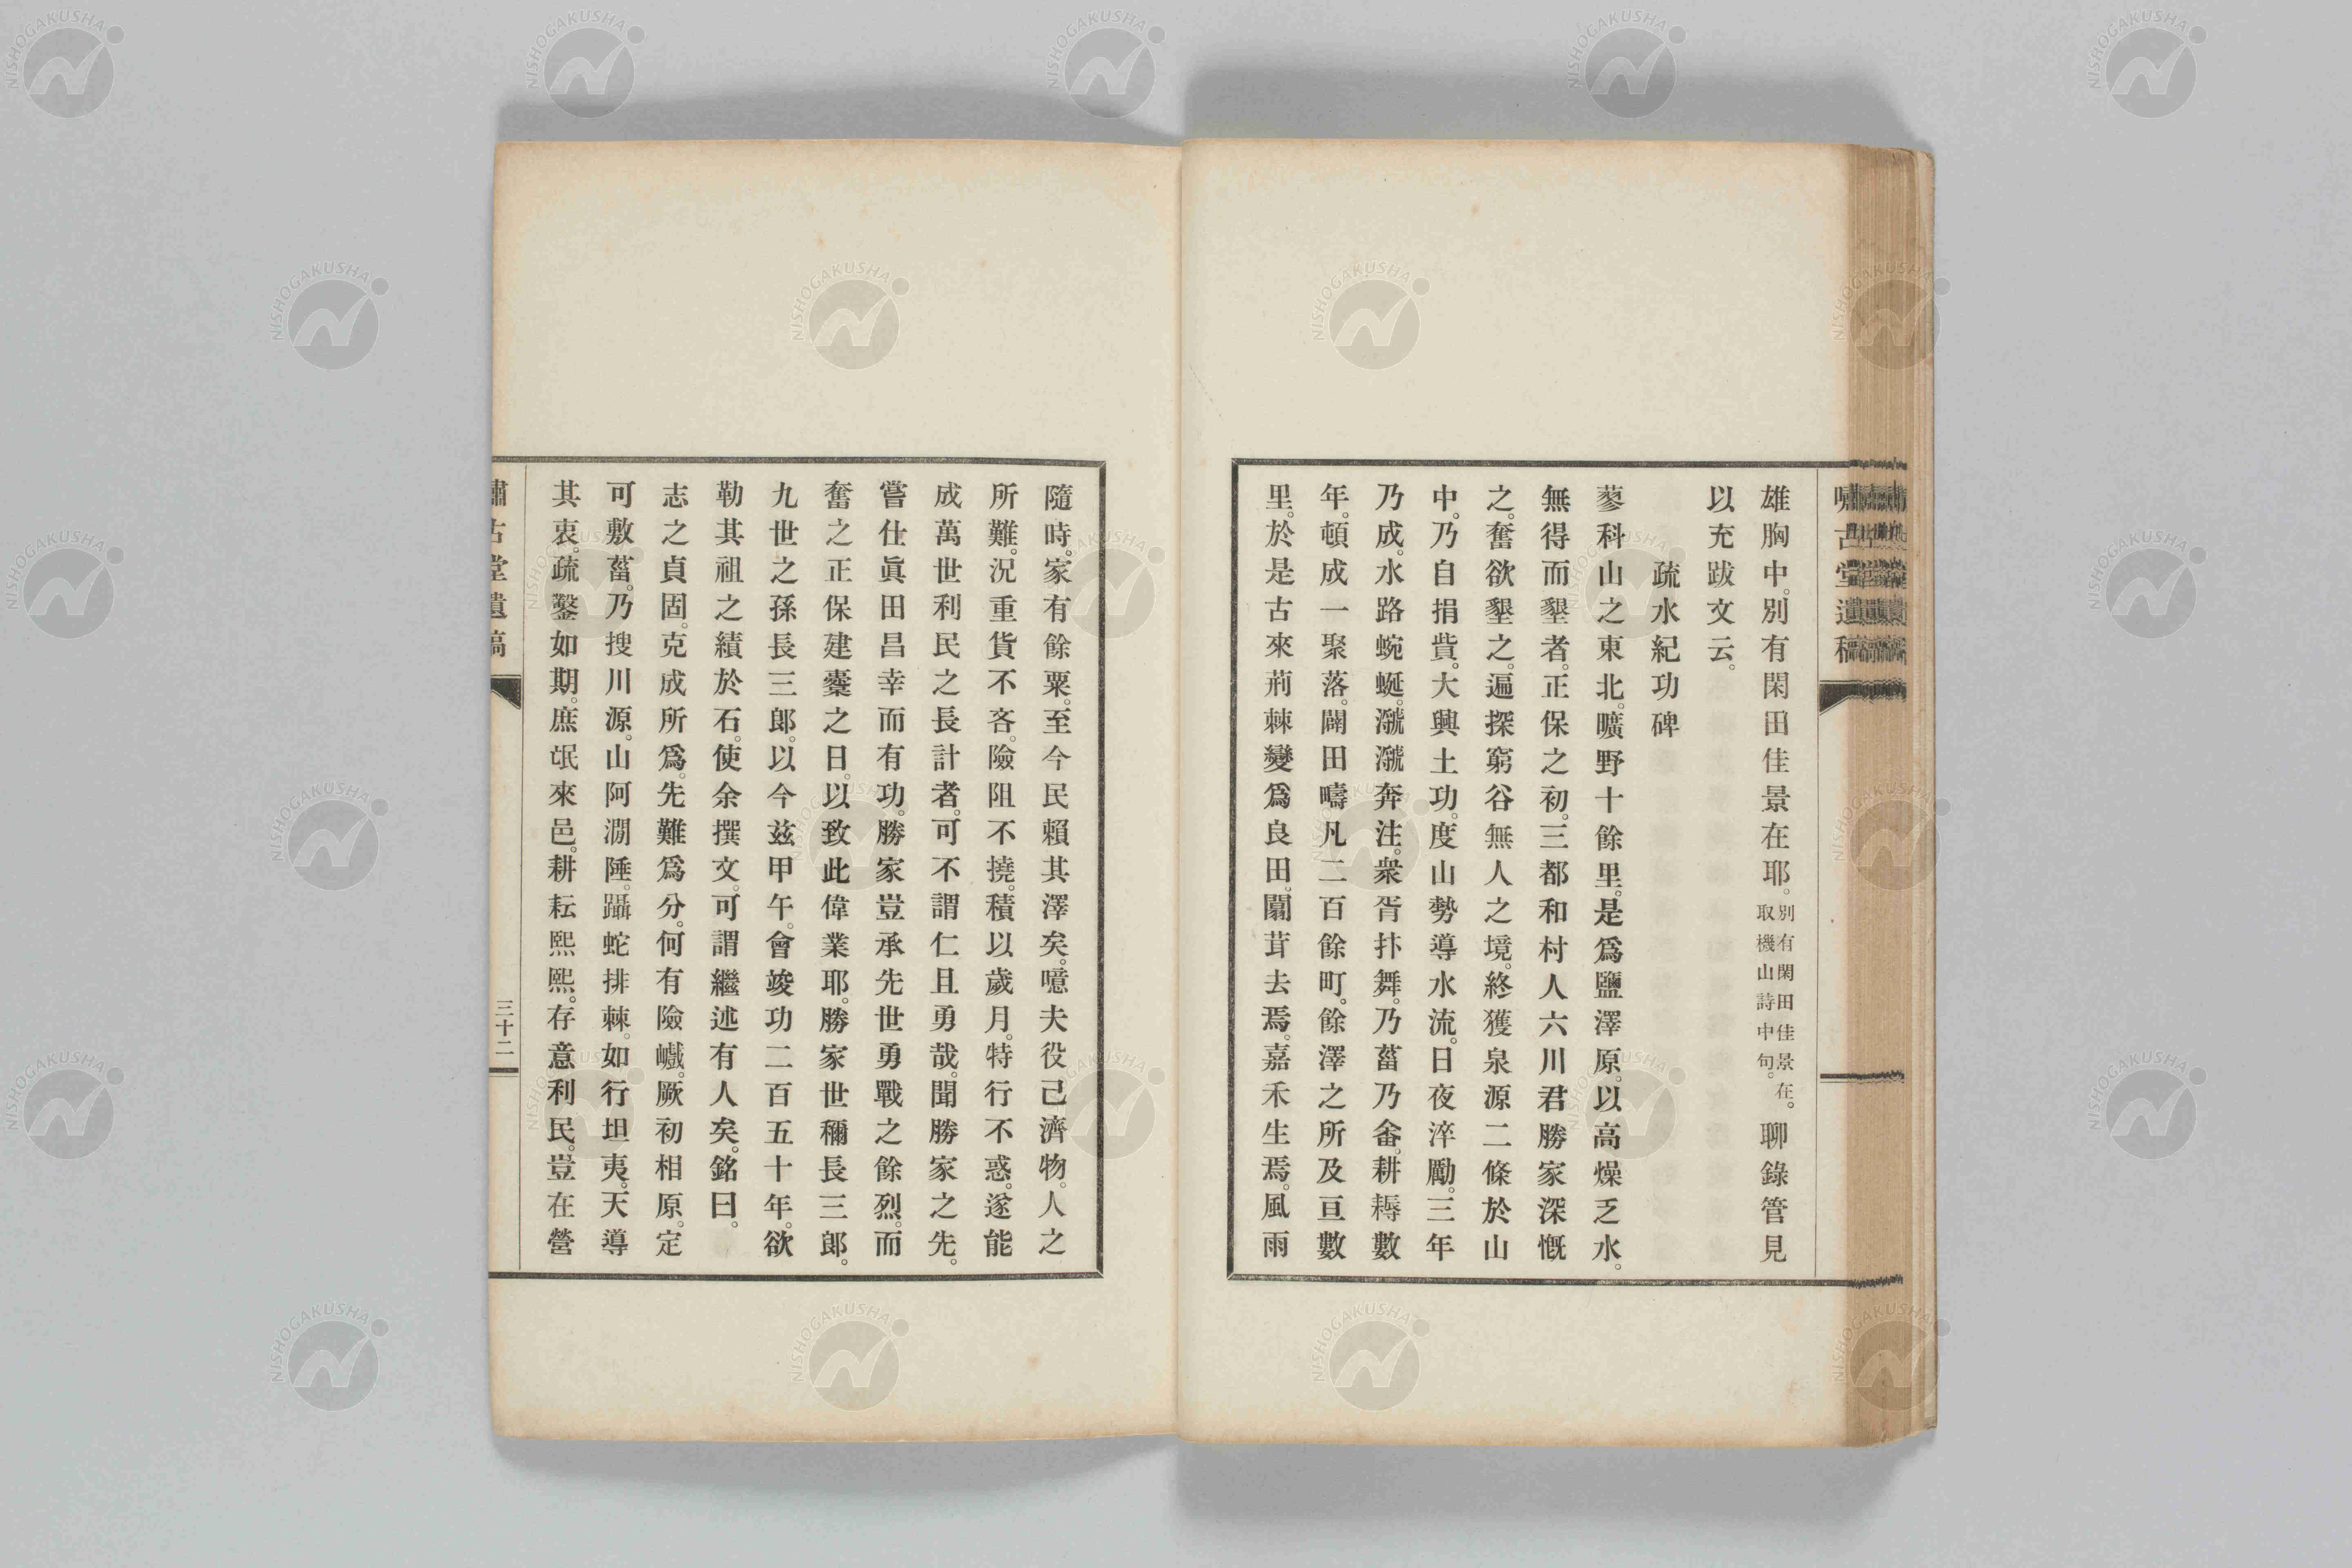 雄胸中。別有閑田佳景在耶。別有閑田佳景在。取機山詩中句。聊錄管見
以充跋文云。
疏水紀功碑
蓼科山之東北。曠野十餘里。是爲鹽澤原。以高燥乏水。
無得而墾者。正保之初。三都和村人六川君勝家深慨
之。奮欲墾之。遍探窮谷無人之境。終獲泉源二條於山
中。乃自捐貲。大興土功。度山勢導水流。日夜淬勵。三年
乃成。水路蜿蜒。㶁㶁奔注。衆胥抃舞。乃菑乃畬。耕耨數
年。頓成一聚落。闢田疇凡二百餘町。餘澤之所及亘數
里。於是古來荊棘變爲良田。闒茸去焉。嘉禾生焉。風雨
隨時。家有餘粟。至今民賴其澤矣。噫夫役己濟物。人之
所難。況重貨不吝。險阻不撓。積以歲月。特行不惑。遂能
成萬世利民之長計者。可不謂仁且勇哉。聞勝家之先。
嘗仕眞田昌幸而有功。勝家豈承先世勇戰之餘烈。而
奮之正保建櫜之日。以致此偉業耶。勝家世稱長三郎。
九世之孫長三郎。以今玆甲午。會竣功二百五十年。欲
勒其祖之績於石。使余撰文。可謂繼述有人矣。銘曰。
志之貞固。克成所爲。先難爲分。何有險巇。厥初相原。定
可敷菑。乃搜川源。山阿澗陲。躡蛇排棘。如行坦夷。天導
其衷。疏鑿如期。庶氓來邑。耕耘熙熙。存意利民。豈在營
嘯古堂遺稿
三十二
NISHOGAKUSHA